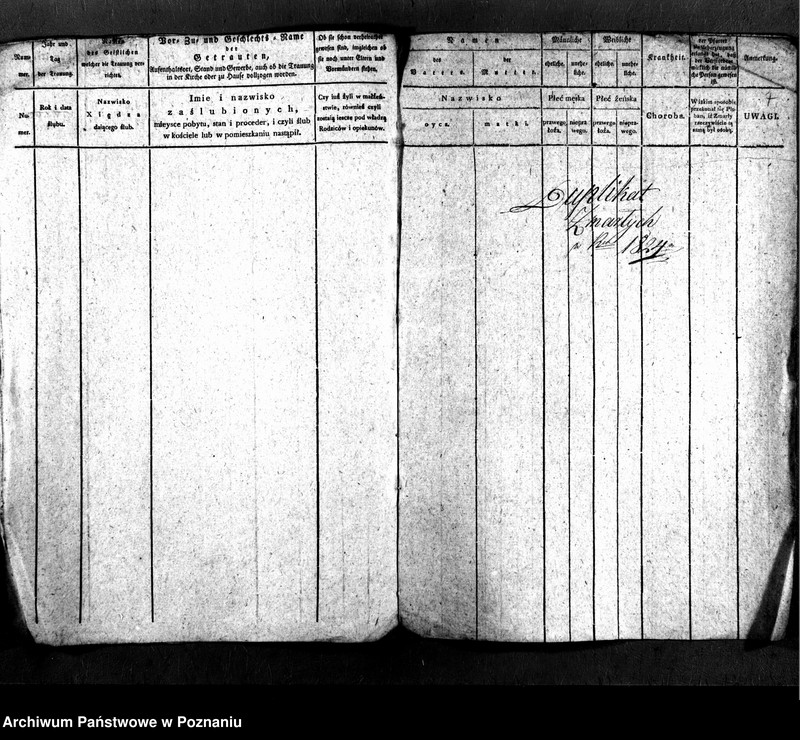 Num-
mer.
Jahr und
Tag
der Trauung.
Namen
des Geistlichen
welcher die Trauung ver-
richtet.
Vor- Zu- und Geschlechts-Name
der
Getrauten,
Aufenthaltsort, Stand und Gewerbe, auch ob die Trauung
in der Kirche oder zu Hause vollzogen worden.
Ob sie schon verheirathet
gewesen sind, imgleichen ob
sie noch unter Eltern und
Vormündern stehen.
Nu
mer.
Rok i data
ślubu.
Nazwisko
Xiędza
daiącego ślub.
Imie i nazwisko
zaślubionych,
mieysce pobytu, stan i proceder, i czyli ślub
w kościele lub w pomieszkaniu nastąpił.
Czy iuż żyli w małżeń-
stwie, również czyli
zostaią ieszcze pod władzą
Rodziców i opiekunów.
Namen
des
Vaters.
der
Mutter.
Männliche
eheliche.
unehe-
liche.
Weibliche
eheliche.
unehe-
liche.
Krankheit.
der Pfarrer
Anmerkung.
Nazwisko
oyca.
matki.
Płeć męska
prawego
łoża.
niepra-
wego.
Płeć żeńska
prawego
łoża.
niepra-
wego.
Choroba.
W iakim sposobie
przekonał się Ple-
ban, iż Zmarły
rzeczywiście tą
samą był osobą.
UWAGI.
7
Duplikat
Zmarłych
1824